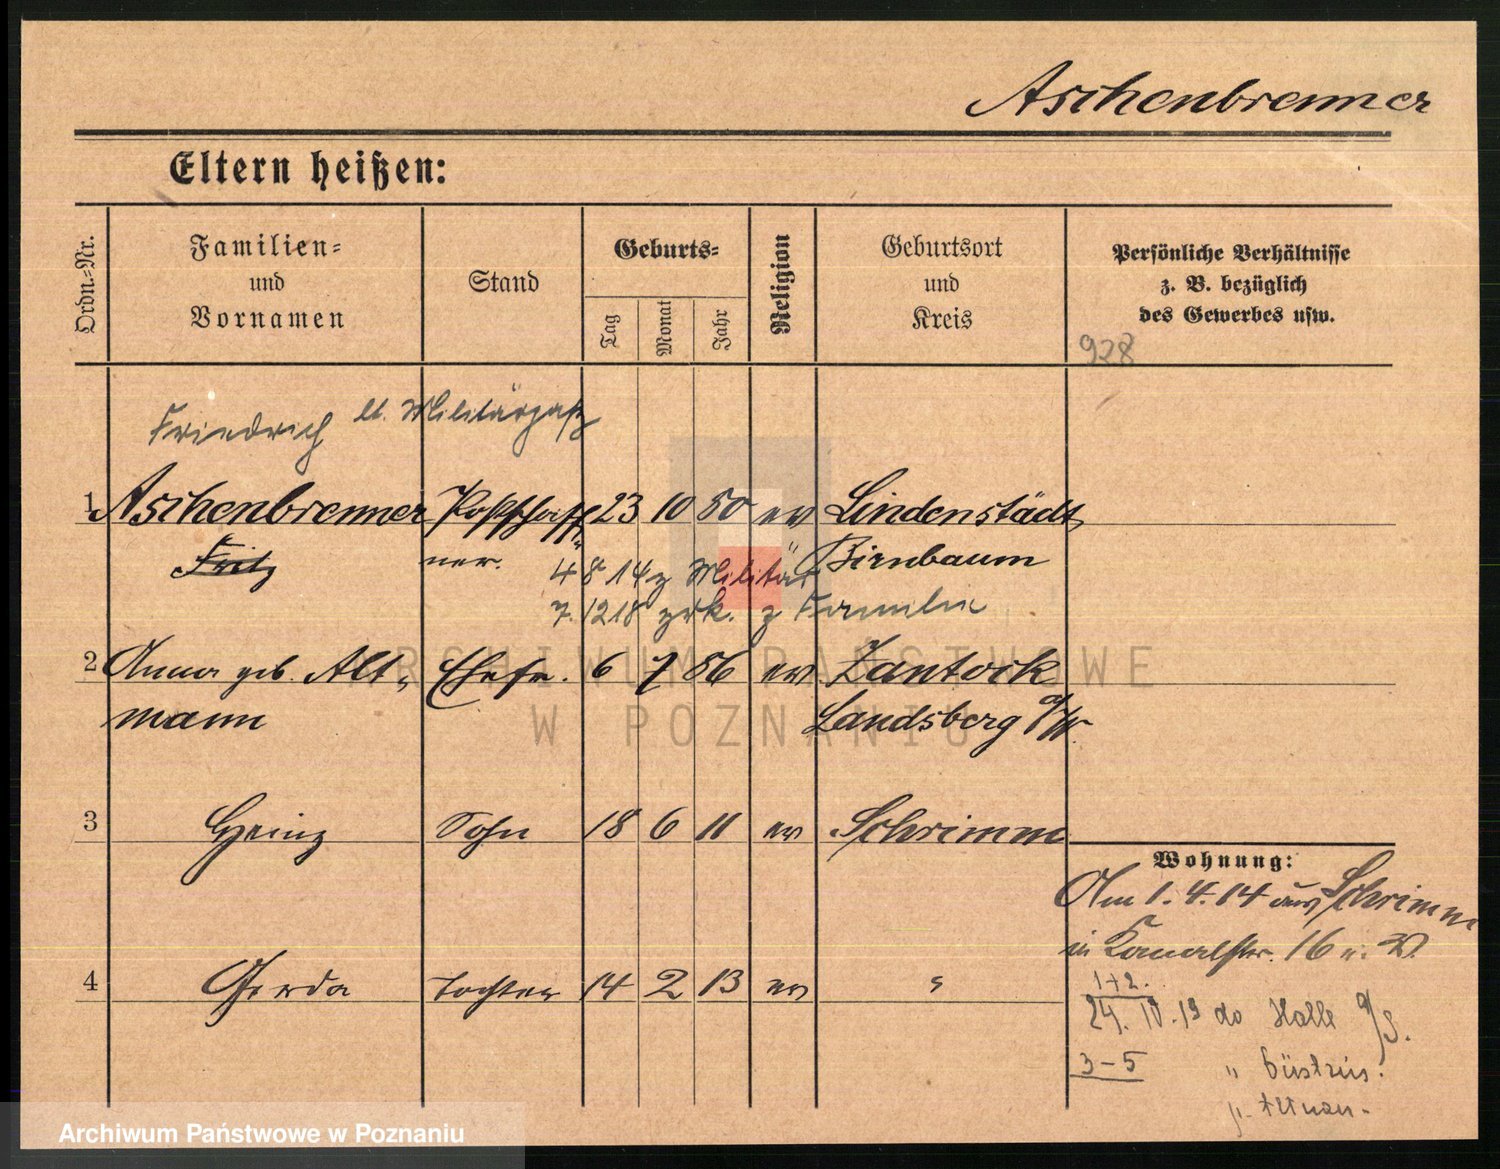 Aschenbrenner
Eltern heißen:
Ordn.=Nr.
Familien=
und
Vornamen
Stand
Geburts=
Tag
Monat
Jahr
Religion
Geburtsort
und
Kreis
Persönliche Verhältnisse
z. B. bezüglich
des Gewerbes usw.
928
Friedrich lt. Militärpaß
1 Aschenbrenner Postschaff= 23 10 80 ev Lindenstädt
Fritz ner. Birnbaum
4 8 14 z Militär
7. 12 18 zrk. z Familie
2 Anna geb. Alt= Ehefr. 6 7 86 ev Zantoch
mann Landsberg a/W.
3 Heinz Sohn 18 6 11 ev Schrimm
Wohnung:
Am 1. 4. 14 aus Schrimm
in Kanalstr. 16 u. W.
4 Gerda Tochter 14 2 13 ev "
1+2.
24. IV. 19 do Halle a/S.
3–5 "
ARCHIWUM PAŃSTWOWE
W POZNANIU
Archiwum Państwowe w Poznaniu